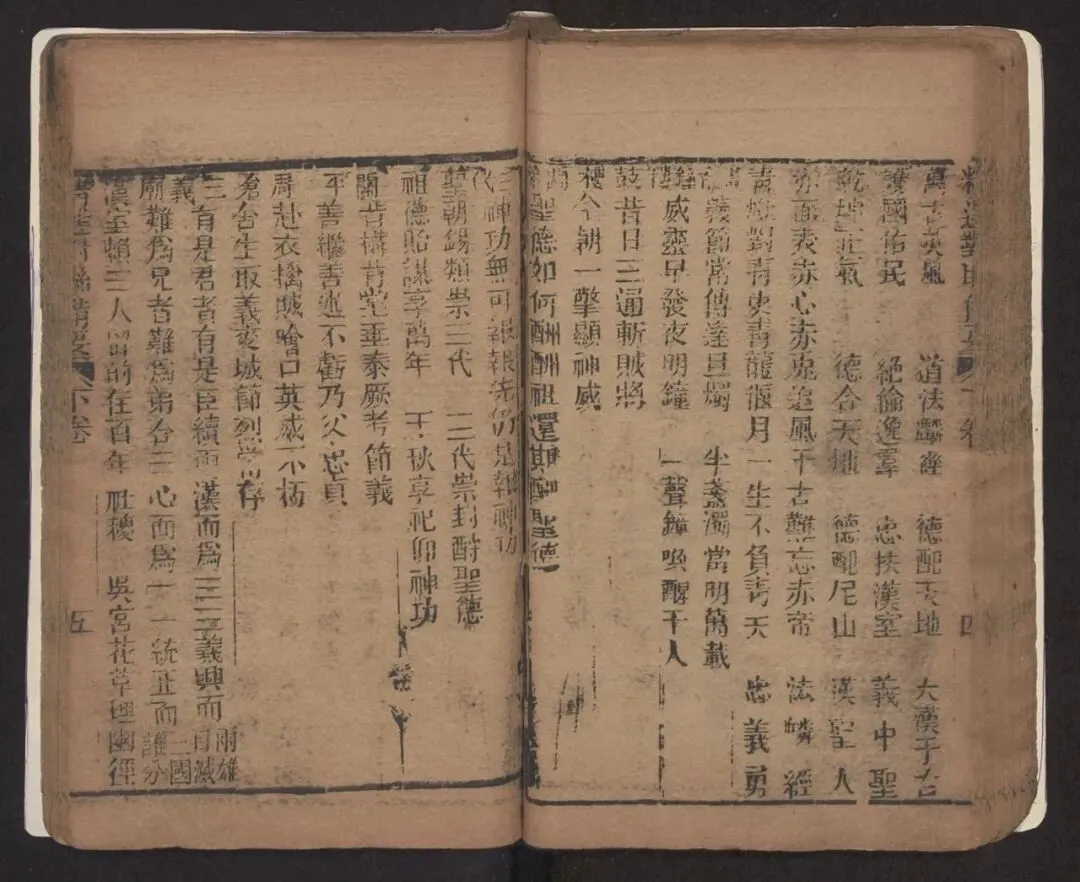 萬古英風 道法麟經 德配天地 大漢千古
護國佑民 絕倫逸羣 忠扶漢室 義中聖
乾坤正氣 德合天地 德配尼山 漢聖人
赤面表赤心赤兎追風千古難忘赤帝 法麟經
青燈對青史青龍偃月一生不負青天 忠義勇
義節常傳達旦燭 半盞濁當明萬載
威靈早發夜明鐘 一聲鐘喚醒千人
鼓昔日三通斬賊將
今朝一擎顯神威
聖德如何酬酬祖還期酬聖德
神功無可報報先仍是報神功
聖朝錫類崇三代 三代崇封酧聖德
祖德貽謀享萬年 千秋享祀仰神功
關昔構肯堂垂泰厥考節義
平善繼善述不虧乃父忠貞
周赴衣擒賊噲口英威不朽
倉舍生取義麥城節烈存
三有是君者有是臣續兩漢而爲三三義興而兩雄目滅
義
廟難爲兄者難爲弟合三心而爲一一統正而三國誰分
漢室賴三人留前在百年社稷 吳宮花草埋幽徑
下卷 五